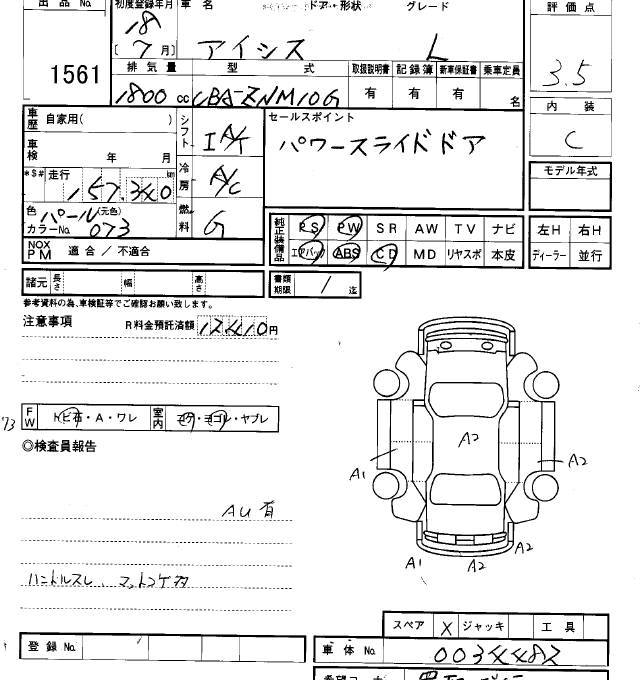 出品 No
1561
初度登録年月
18
[ 7 月]
車 名
アイシス
ドア・形状
グレード
L
評 価 点
3.5
排 気 量
1800 cc
型 式
CBA-ZNM10G
取扱説明書 有
記録簿 有
新車保証書 有
乗車定員 名
内 装
C
車歴 自家用( )
車検 年 月
シフト IA/T
セールスポイント
パワースライドドア
モデル年式
*$# 走行 km
157,340
冷房 A/C
色 パール (元色)
カラーNo. 073
燃料 G
純正装備品 PS PW SR AW TV ナビ
エアバック ABS CD MD リヤスポ 本皮
左H 右H
ディーラー 並行
NOX PM 適合 / 不適合
諸元 長さ 幅 高さ
書類期限 / 迄
参考資料の為、車検証等でご確認お願い致します。
注意事項 R料金預託済額 12410円
FW トビ石・A・ワレ 室内 コゲ・ヨゴレ・ヤブレ
73
◎検査員報告
AU有
ハンドルスレ、マットコゲ有
A2
A1 A2
A1 A2 A2
スペア X ジャッキ 工具
登録 No. 車体 No. 0034482